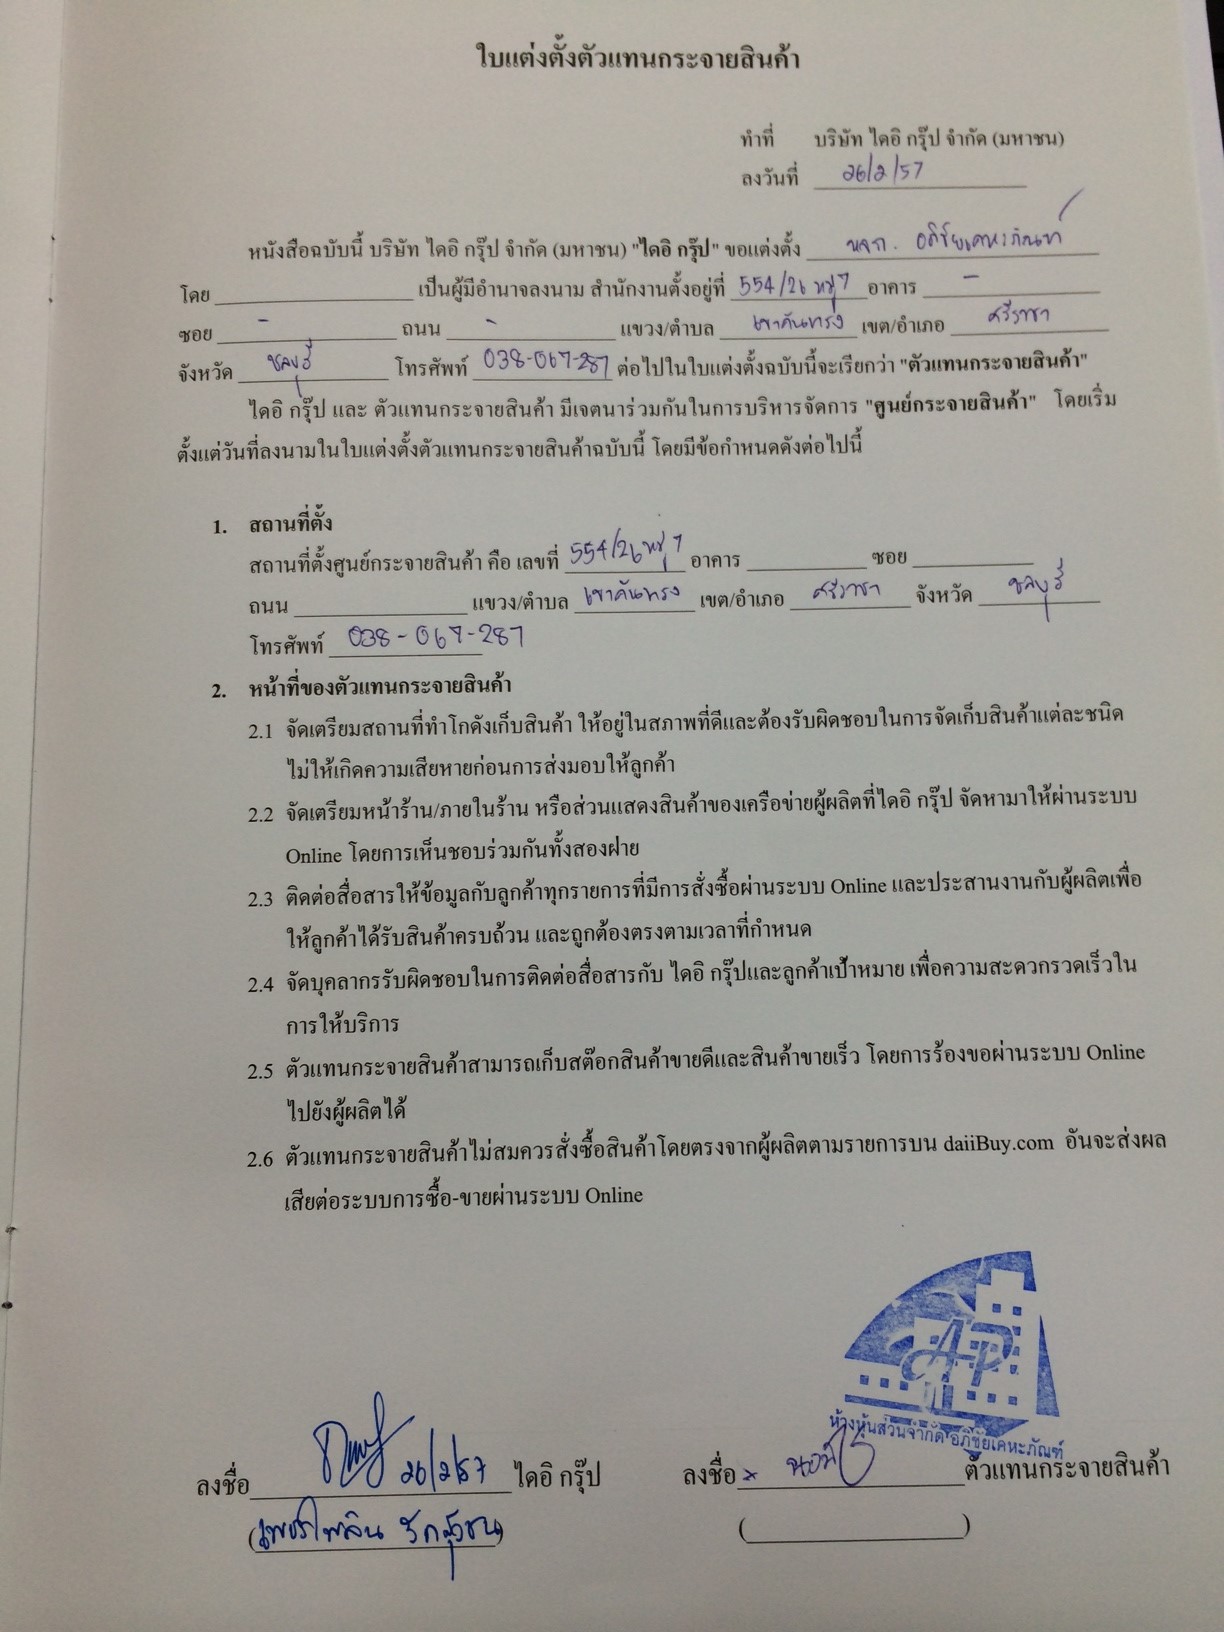 ใบแต่งตั้งตัวแทนกระจายสินค้า
ทำที่ บริษัท ไดอิ กรุ๊ป จำกัด (มหาชน)
ลงวันที่ 26/2/57
หนังสือฉบับนี้ บริษัท ไดอิ กรุ๊ป จำกัด (มหาชน) "ไดอิ กรุ๊ป" ขอแต่งตั้ง หจก. อภิชัยเคหะภัณฑ์
โดย เป็นผู้มีอำนาจลงนาม สำนักงานตั้งอยู่ที่ 554/26 หมู่ 7 อาคาร -
ซอย - ถนน - แขวง/ตำบล เขาคันทรง เขต/อำเภอ ศรีราชา
จังหวัด ชลบุรี โทรศัพท์ 038-067-287 ต่อไปในใบแต่งตั้งฉบับนี้จะเรียกว่า "ตัวแทนกระจายสินค้า"
ไดอิ กรุ๊ป และ ตัวแทนกระจายสินค้า มีเจตนาร่วมกันในการบริหารจัดการ "ศูนย์กระจายสินค้า" โดยเริ่ม
ตั้งแต่วันที่ลงนามในใบแต่งตั้งตัวแทนกระจายสินค้าฉบับนี้ โดยมีข้อกำหนดดังต่อไปนี้
1. สถานที่ตั้ง
สถานที่ตั้งศูนย์กระจายสินค้า คือ เลขที่ 554/26 หมู่ 7 อาคาร ซอย
ถนน แขวง/ตำบล เขาคันทรง เขต/อำเภอ ศรีราชา จังหวัด ชลบุรี
โทรศัพท์ 038-067-287
2. หน้าที่ของตัวแทนกระจายสินค้า
2.1 จัดเตรียมสถานที่ทำโกดังเก็บสินค้า ให้อยู่ในสภาพที่ดีและต้องรับผิดชอบในการจัดเก็บสินค้าแต่ละชนิด
ไม่ให้เกิดความเสียหายก่อนการส่งมอบให้ลูกค้า
2.2 จัดเตรียมหน้าร้าน/ภายในร้าน หรือส่วนแสดงสินค้าของเครือข่ายผู้ผลิตที่ไดอิ กรุ๊ป จัดหามาให้ผ่านระบบ
Online โดยการเห็นชอบร่วมกันทั้งสองฝ่าย
2.3 ติดต่อสื่อสารให้ข้อมูลกับลูกค้าทุกรายการที่มีการสั่งซื้อผ่านระบบ Online และประสานงานกับผู้ผลิตเพื่อ
ให้ลูกค้าได้รับสินค้าครบถ้วน และถูกต้องตรงตามเวลาที่กำหนด
2.4 จัดบุคลากรรับผิดชอบในการติดต่อสื่อสารกับ ไดอิ กรุ๊ปและลูกค้าเป้าหมาย เพื่อความสะดวกรวดเร็วใน
การให้บริการ
2.5 ตัวแทนกระจายสินค้าสามารถเก็บสต๊อกสินค้าขายดีและสินค้าขายเร็ว โดยการร้องขอผ่านระบบ Online
ไปยังผู้ผลิตได้
2.6 ตัวแทนกระจายสินค้าไม่สมควรสั่งซื้อสินค้าโดยตรงจากผู้ผลิตตามรายการบน daiiBuy.com อันจะส่งผล
เสียต่อระบบการซื้อ-ขายผ่านระบบ Online
AP
ห้างหุ้นส่วนจำกัด อภิชัยเคหะภัณฑ์
ลงชื่อ 26/2/57 ไดอิ กรุ๊ป ลงชื่อ ตัวแทนกระจายสินค้า